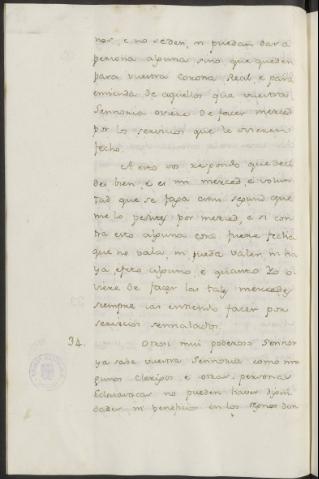 nos, e no se den, ni puedan dar a
persona alguna sino que queden
para vuestra Corona Real, e para
enmienda de aquellos que vuestra
Sennoria oviere de facer merced
por los servicios que le ovieren
fecho.
A esto vos respondo que deci
des bien, e es mi merced, e volun
tad que se faga como segund que
me lo pedistes por merced, e si con
tra esto alguna cosa fuere fecha
que no vala, ni pueda valer, ni ha
ya efeto alguno, e quando Yo o
viere de façer las tales mercedes
siempre las entiendo facer por
servicios sennalados.
34. Otrosi mui poderoso Sennor
ya sabe vuestra Sennoria como nin
gunos Clerigos e otras personas
Eclesiasticas no pueden haver digni
dades, ni beneficios en los Reynos don